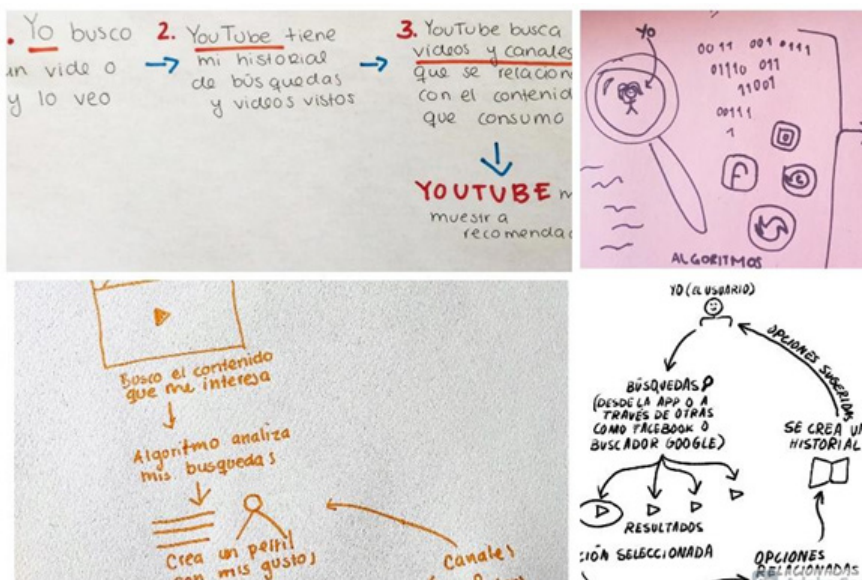 . Yo busco
un video
y lo veo
2. YouTube tiene
mi historial
de búsquedas
y videos vistos
3. YouTube busca
videos y canales
que se relacion
con el contenid
que consumo
YOUTUBE m
muestra
recomendac
YO
0011 001 0111
01110 011
11001
00111
1
ALGORITMOS
Busco el contenido
que me interesa
Algoritmo analiza
mis busquedas
Crea un perfil
con mis gustos
Canales
YO (EL USUARIO)
BÚSQUEDAS
(DESDE LA APP O A
TRAVÉS DE OTRAS
COMO FACEBOOK O
BUSCADOR GOOGLE)
RESULTADOS
CIÓN SELECCIONADA
OPCIONES SUGERIDAS
SE CREA UN
HISTORIAL
OPCIONES
RELACIONADAS